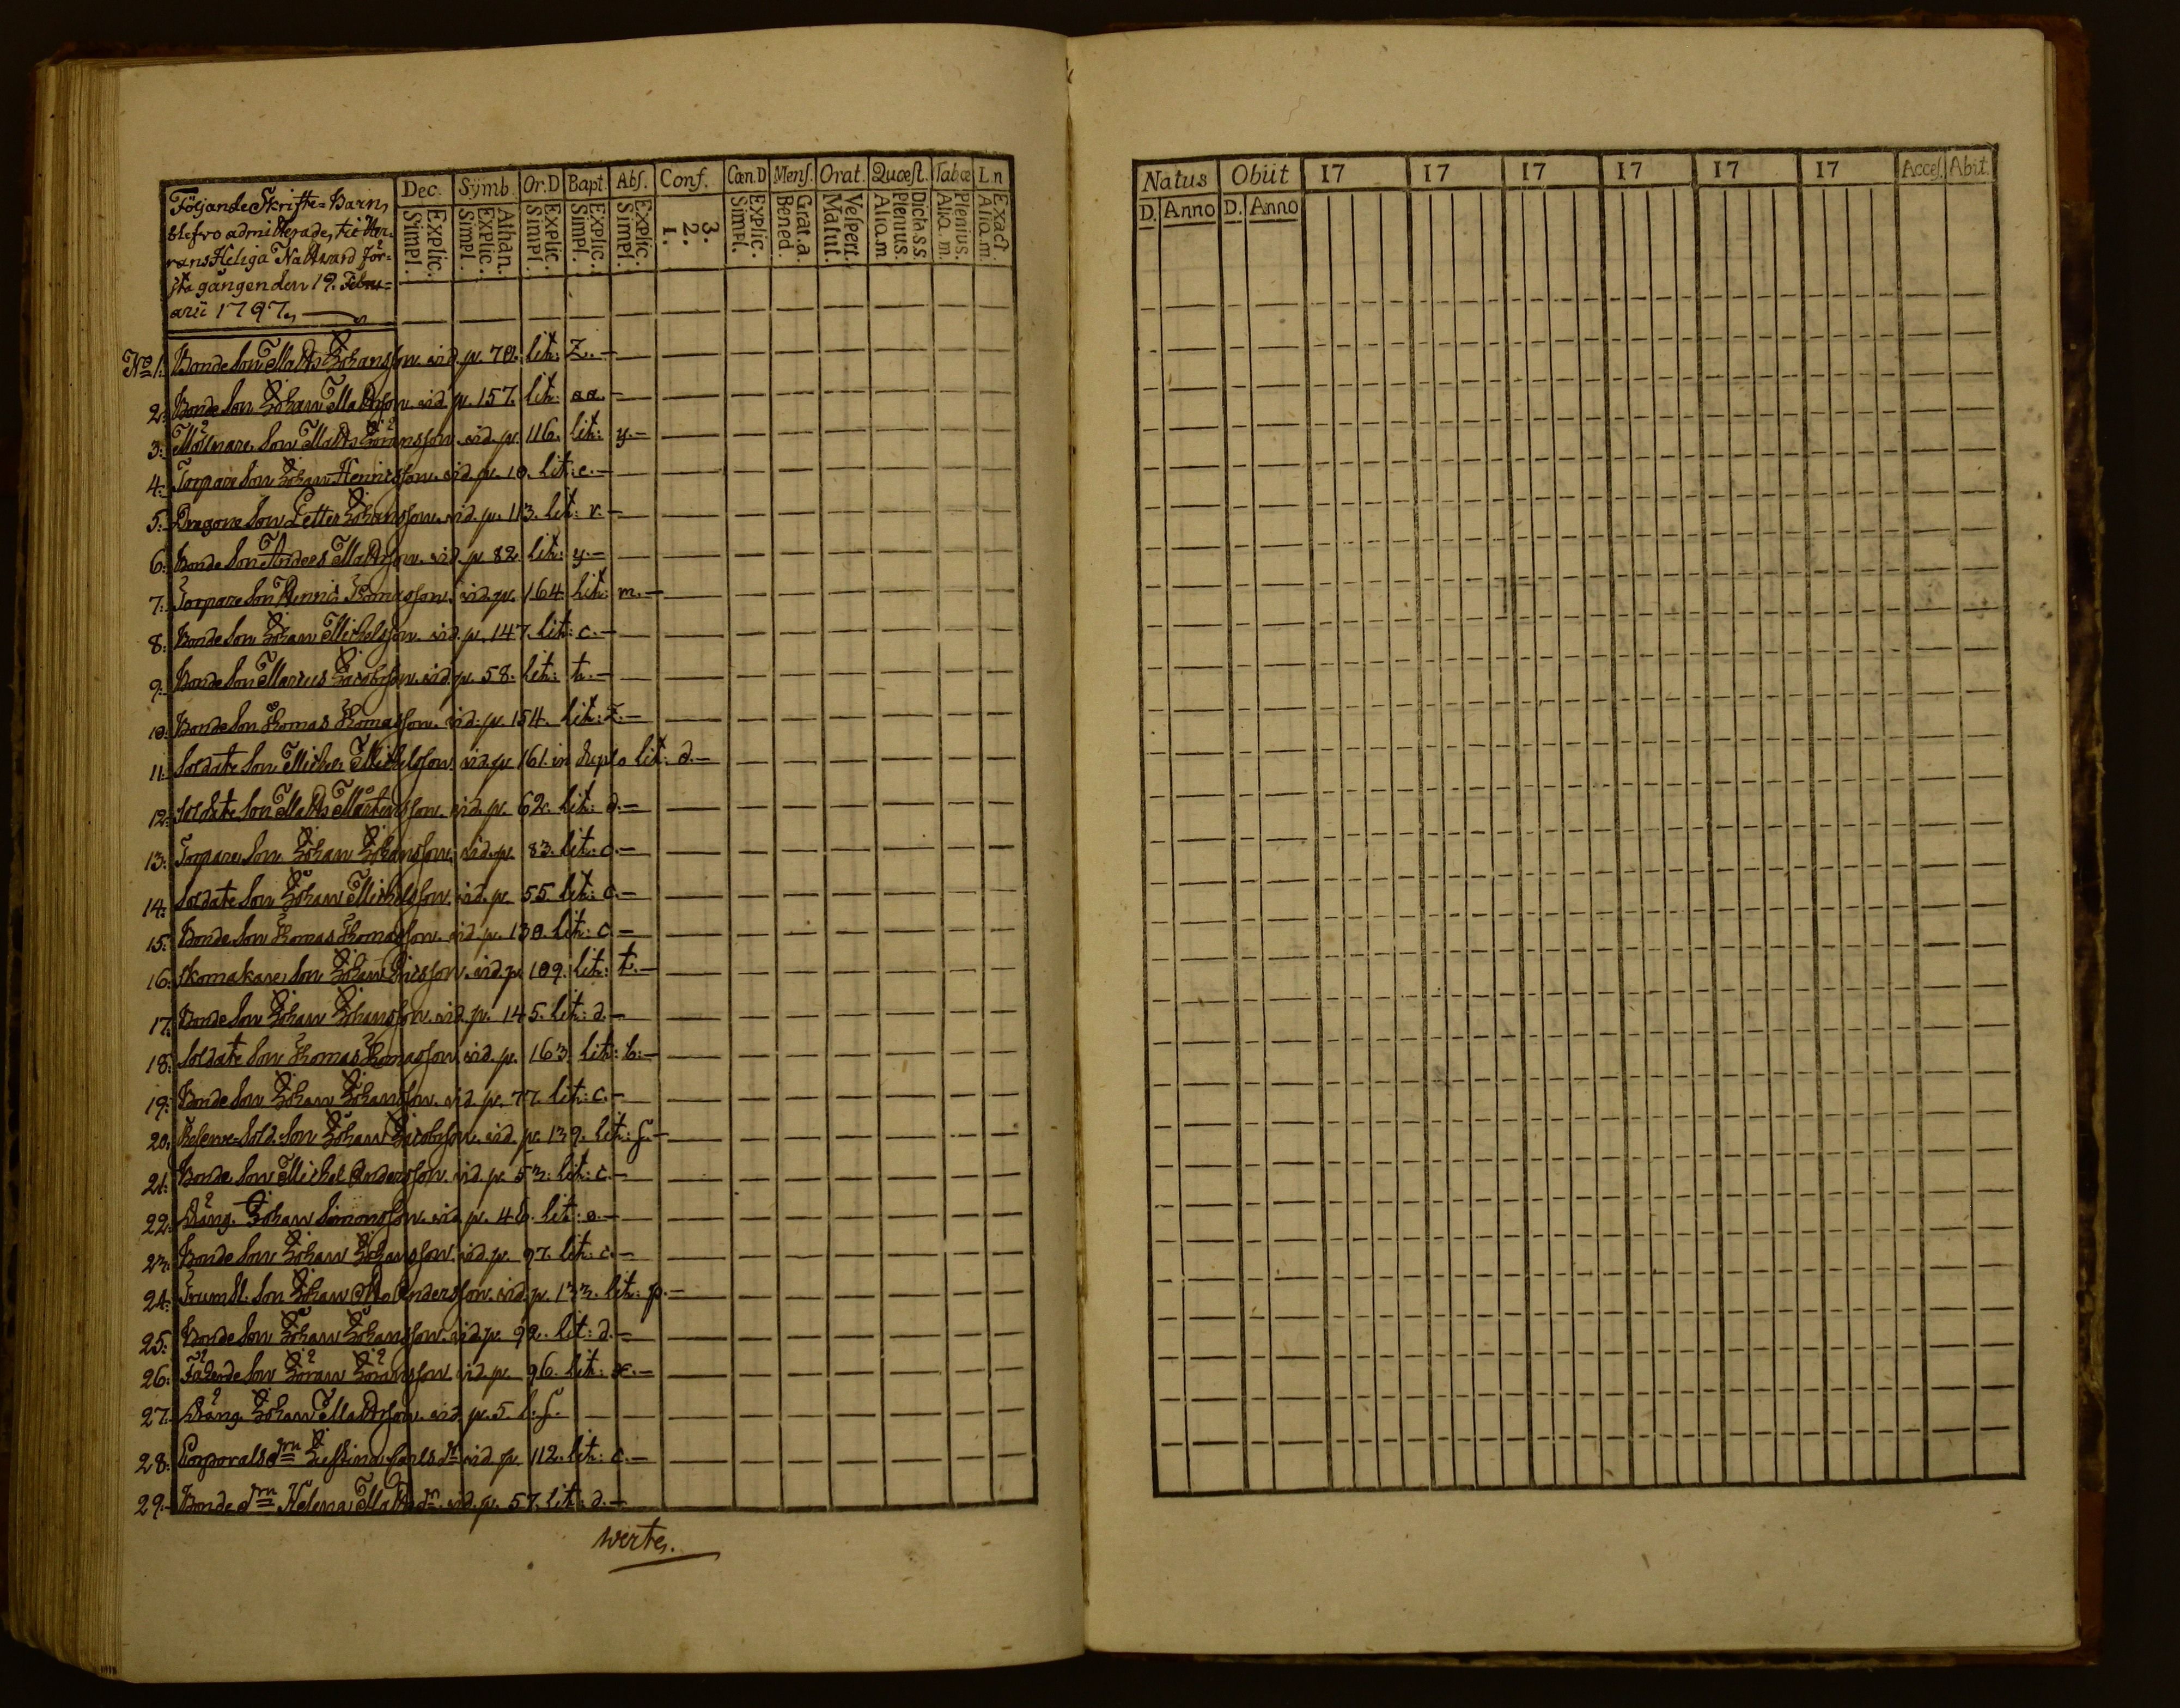 Följande Skrifte-Barn,
blefvo admitterade, til Her-
rans Heliga Nattward för-
sta gången den 19. Febru-
arii 1797.
Dec. Symb. Or.D Bapt. Abs. Conf. Cœn.D Mens. Orat. Quæst. Tab.œ L.n
Simpl. Explic. Simpl. Explic. Athan. Simpl. Explic. Simpl. Explic. Simpl. Explic. 1. 2. 3. Simpl. Explic. Bened. Grat.a. Matut. Vespert. Alia.m Plenius. Dicta s.s. Alia.m. Plenius. Alia.m. Exact.
No 1. Bonde Son Matts Johansson. vid. p. 70. lit: z.
2. Bonde Son Johan Mattsson. vid. p. 157. lit: aa.
3: Mölnare Son Matts Göransson. vid. p. 116. lit: y.
4. Torpare Son Johan Henricsson. vid. p. 10. lit: e.
5. Dragone Son Petter Johansson. vid. p. 113. lit: r.
6: Bonde Son Anders Mattsson. vid. p. 82. lit: y.
7: Torpare Son Henric Thomasson. vid. p. 164. lit: m.
8: Bonde Son Johan Michelsson. vid. p. 147. lit: c.
9. Bonde Son Marcus Jacobsson. vid. p. 58. lit: t.
10: Bonde Son Thomas Thomasson. vid. p. 154. lit: z.
11. Soldate Son Michel Michelsson. vid. p. 161. in duplo lit: d.
12: Soldate Son Matts Mårtensson. vid. p. 62. lit: d.
13: Torpare Son Johan Johansson. vid. p. 83. lit: c.
14: Soldate Son Johan Michelsson. vid. p. 55. lit: c.
15: Bonde Son Thomas Thomasson. vid. p. 130. lit: c.
16: Skomakare Son Johan Ericsson. vid. p. 109. lit: t.
17: Bonde Son Johan Johansson. vid. p. 145. lit: d.
18: Soldate Son Thomas Thomasson. vid. p. 163. lit: b:
19: Bonde Son Johan Johansson. vid. p. 77. lit: c.
20: Reserve-Sold. Son Johan Jacobsson. vid. p. 139. lit: f.
21: Bonde Son Michel Andersson. vid. p. 53. lit: c.
22: Dräng. Johan Simonsson. vid. p. 46. lit: o.
23: Bonde Son Johan Johansson. vid. p. 97. lit: c.
24: Trumsl. Son Johan Andersson. vid. p. 133. lit: p.
25: Bonde Son Johan Johansson. vid. p. 92. lit: d.
26: Son Göran Göransson. vid. p. 96. lit: x.
27. Dräng. Johan Mattsson. vid. p. 5. l. f.
28: Corporals drn Justina Carlsdr vid. p. 112. lit: c.
29. Bonde drn Helena Mattsdr. vid. p. 57. lit: d.
werte.
Natus Obiit 17 17 17 17 17 17 Acces. Abit.
D. Anno D. Anno